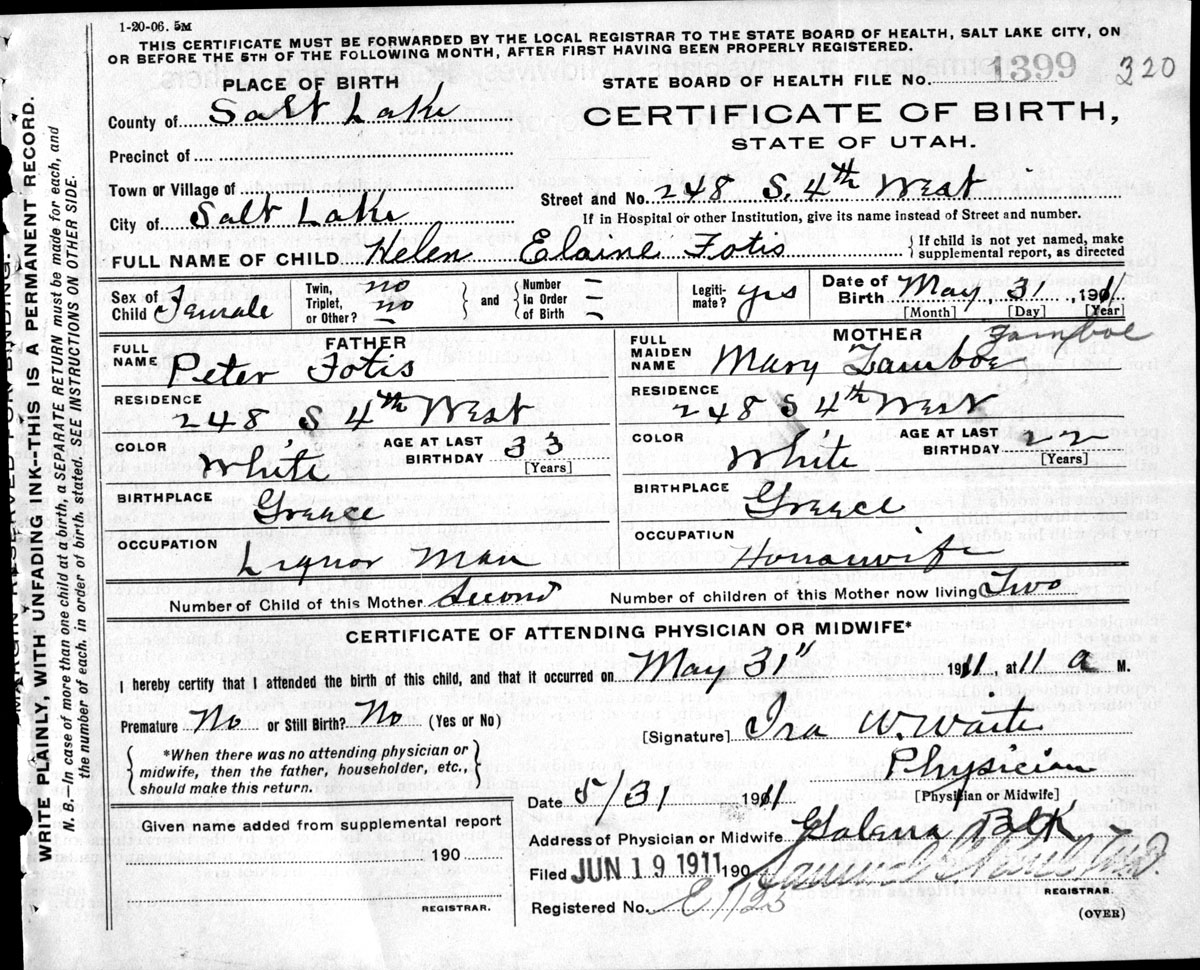 1-20-06. 5M
THIS CERTIFICATE MUST BE FORWARDED BY THE LOCAL REGISTRAR TO THE STATE BOARD OF HEALTH, SALT LAKE CITY, ON
OR BEFORE THE 5TH OF THE FOLLOWING MONTH, AFTER FIRST HAVING BEEN PROPERLY REGISTERED.
PLACE OF BIRTH
STATE BOARD OF HEALTH FILE NO. 1399 320
County of Salt Lake
CERTIFICATE OF BIRTH,
STATE OF UTAH.
Precinct of
Town or Village of
Street and No. 248 S. 4th West
City of Salt Lake
If in Hospital or other Institution, give its name instead of Street and number.
FULL NAME OF CHILD Helen Elaine Fotis { If child is not yet named, make supplemental report, as directed
Sex of Child Female
Twin, Triplet, or Other? no no
and Number In Order of Birth
Legiti-mate? yes
Date of Birth May, 31, 1911
[Month] [Day] [Year]
FATHER
FULL NAME Peter Fotis
RESIDENCE
248 S 4th West
COLOR White
AGE AT LAST BIRTHDAY 33 [Years]
BIRTHPLACE
Greece
OCCUPATION
Liquor Man
MOTHER
FULL MAIDEN NAME Mary Zamboe Zamboe
RESIDENCE
248 S 4th West
COLOR White
AGE AT LAST BIRTHDAY 22 [Years]
BIRTHPLACE
Greece
OCCUPATION
Housewife
Number of Child of this Mother Second
Number of children of this Mother now living Two
CERTIFICATE OF ATTENDING PHYSICIAN OR MIDWIFE*
I hereby certify that I attended the birth of this child, and that it occurred on May 31" 1911, at 11 a M.
Premature No or Still Birth? No (Yes or No)
[Signature] Ira W. Waite
Physician
[Physician or Midwife]
*When there was no attending physician or
midwife, then the father, householder, etc.,
should make this return.
Date 5/31 1911
Given name added from supplemental report
190
REGISTRAR.
Address of Physician or Midwife Galena Blk
Filed JUN 19 1911 190
REGISTRAR.
Registered No. E 1125
(OVER)
MARGIN RESERVED FOR BINDING.
WRITE PLAINLY, WITH UNFADING INK--THIS IS A PERMANENT RECORD.
N. B. In case of more than one child at a birth, a SEPARATE RETURN must be made for each, and
the number of each, in order of birth, stated. SEE INSTRUCTIONS ON OTHER SIDE.